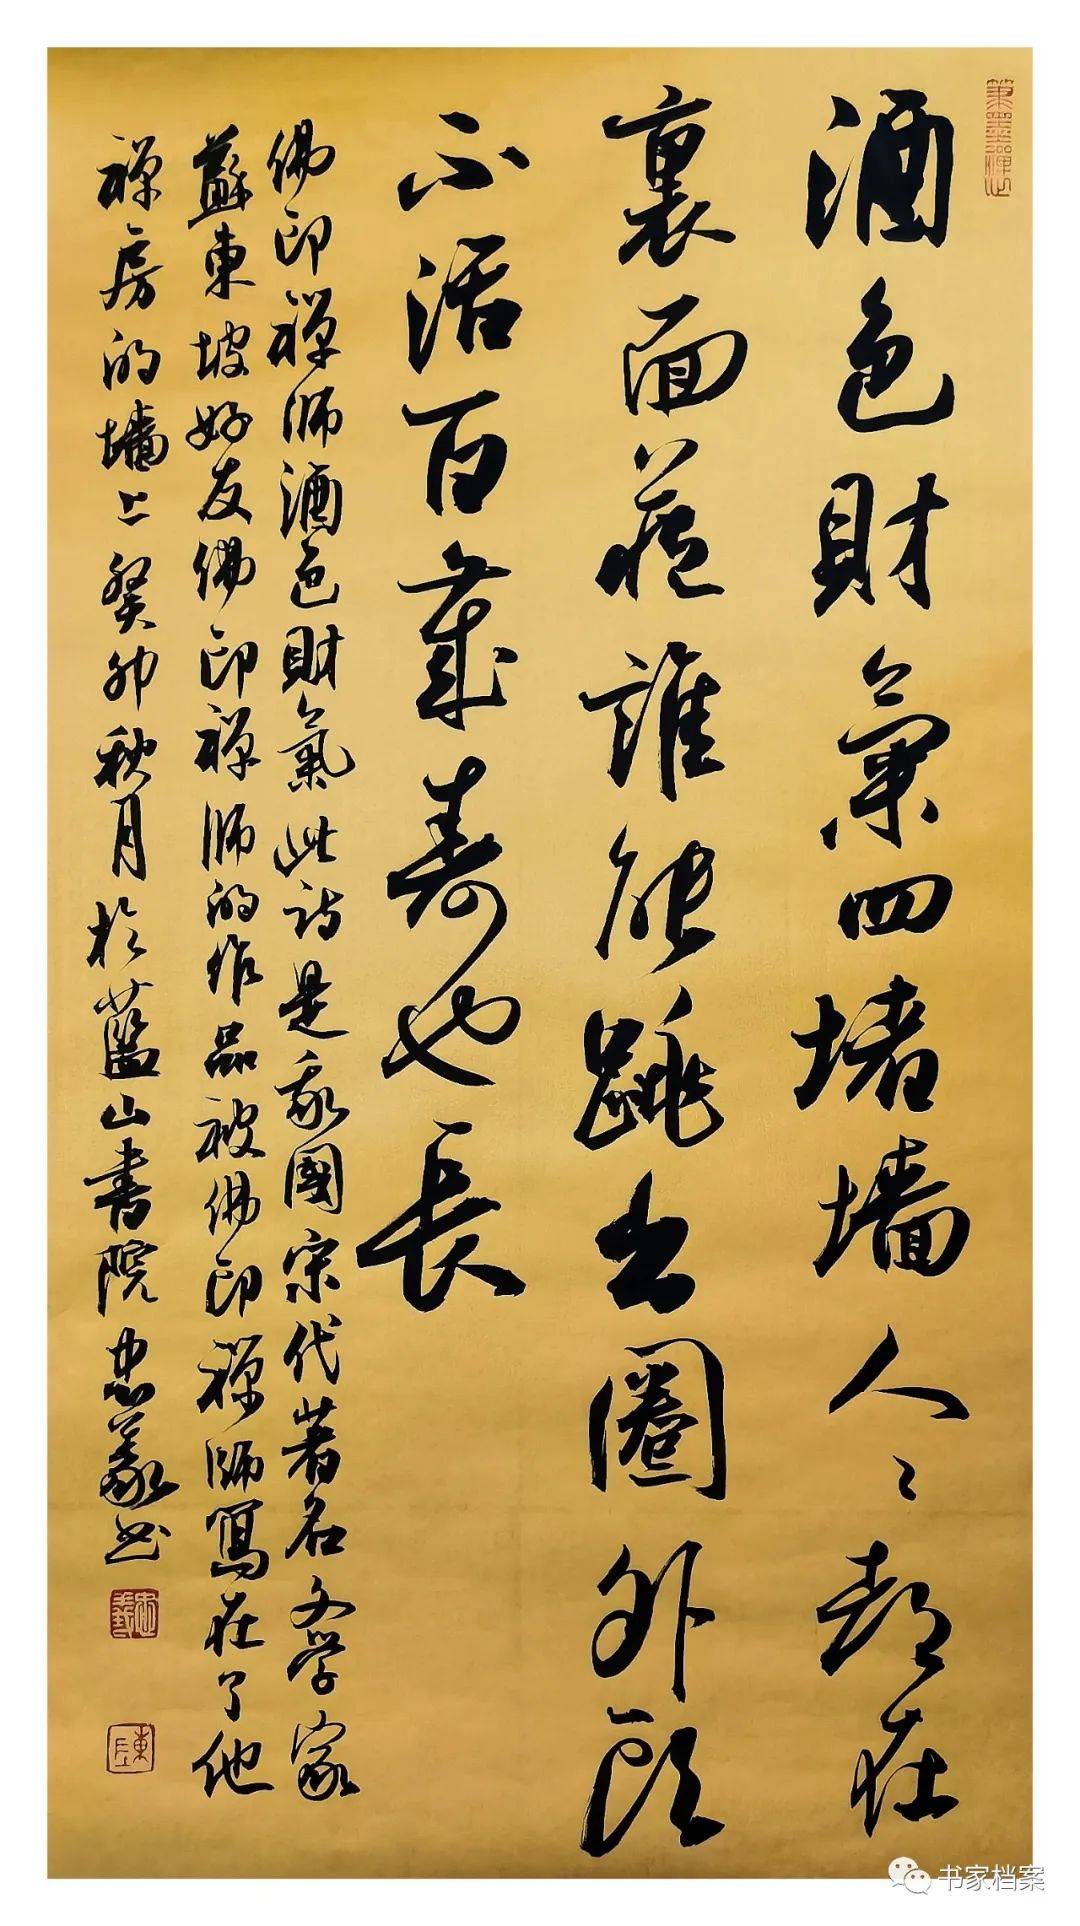 筆墨禪心
酒色財氣四堵墙人々都在
裏面藏誰能跳出圈外頭
不活百歲壽也長
佛印禅師酒色財氣此诗是我國宋代著名文学家
蘇東坡好友佛印禅師的作品被佛印禅師寫在了他
禅房的墙上癸卯秋月於藍山書院忠義书
忠義
书家档案